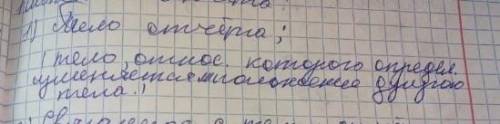 1) Тело отчёта;
(тело, относ. которого определ.
изменяется положение другого
тела.)